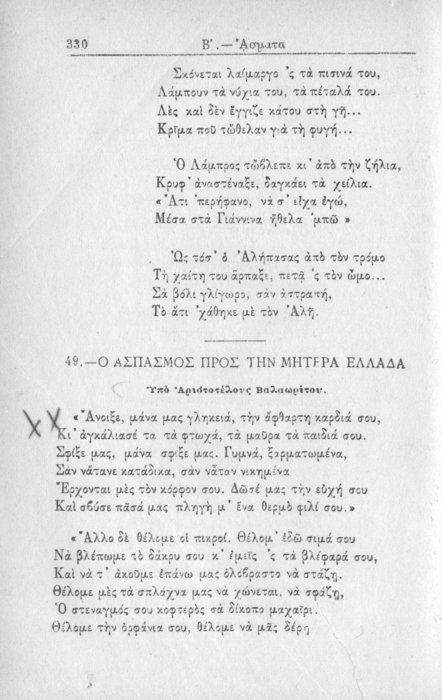 330
Β΄. — ᾌσματα
Σκόνεται λαίμαργο ᾽ς τὰ πισινά του,
Λάμπουν τὰ νύχια του, τὰ πέταλά του.
Λὲς καὶ δὲν ἔγγιζε κάτου στὴ γῆ...
Κρῖμα ποῦ τὤθελαν γιὰ τὴ φυγή...
Ὁ Λάμπρος τὤβλεπε κι᾽ ἀπὸ τὴν ζήλια,
Κρυφ᾽ ἀναστέναξε, δαγκάει τὰ χείλια.
« Ἄτι ᾽περήφανο, νὰ σ᾽ εἶχα ἐγώ,
Μέσα στὰ Γιάννινα ἤθελα ᾽μπῶ »
Ὣς τόσ᾽ ὁ Ἀλήπασας ἀπὸ τὸν τρόμο
Τὴ χαίτη του ἅρπαξε, πετᾷ ᾽ς τὸν ὦμο...
Σὰ βόλι γλίγωρο, σὰν ἀστραπή,
Τὸ ἄτι ᾽χάθηκε μὲ τὸν Ἀλῆ.
49.—Ο ΑΣΠΑΣΜΟΣ ΠΡΟΣ ΤΗΝ ΜΗΤΕΡΑ ΕΛΛΑΔΑ
Ὑπὸ Ἀριστοτέλους Βαλαωρίτου.
« Ἄνοιξε, μάνα μας γληκειά, τὴν ἄφθαρτη καρδιά σου,
Κι᾽ ἀγκάλιασέ τα τὰ φτωχά, τὰ μαῦρα τὰ παιδιά σου.
Σφίξε μας, μάνα σφίξε μας. Γυμνά, ξαρματωμένα,
Σὰν νἄτανε κατάδικα, σὰν νἄταν νικημένα
Ἔρχονται μὲς τὸν κόρφον σου. Δῶσέ μας τὴν εὐχή σου
Καὶ σβύσε πᾶσά μας πληγὴ μ᾽ ἕνα θερμὸ φιλί σου.»
« Ἄλλο δὲ θέλομε οἱ πικροί. Θέλομ᾽ ἐδῶ σιμά σου
Νὰ βλέπωμε τὸ δάκρυ σου κ᾽ ἐμεῖς ᾽ς τὰ βλέφαρά σου,
Καὶ νὰ τ᾽ ἀκοῦμε ἐπάνω μας ὁλόβραστο νὰ στάζῃ.
Θέλομε μὲς τὰ σπλάχνα μας νὰ χώνεται, νὰ σφάζῃ,
Ὁ στεναγμός σου κοφτερὸς σὰ δίκοπο μαχαίρι.
Θέλομε τὴν ὀρφάνια σου, θέλομε νὰ μᾶς δέρῃ